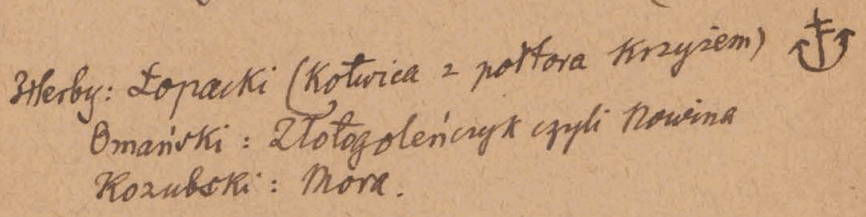 Herby: Łopacki (Kotwica z półtora Krzyżem)
Omański: Złotogoleńczyk czyli Nowina
Kozubski: Mora.